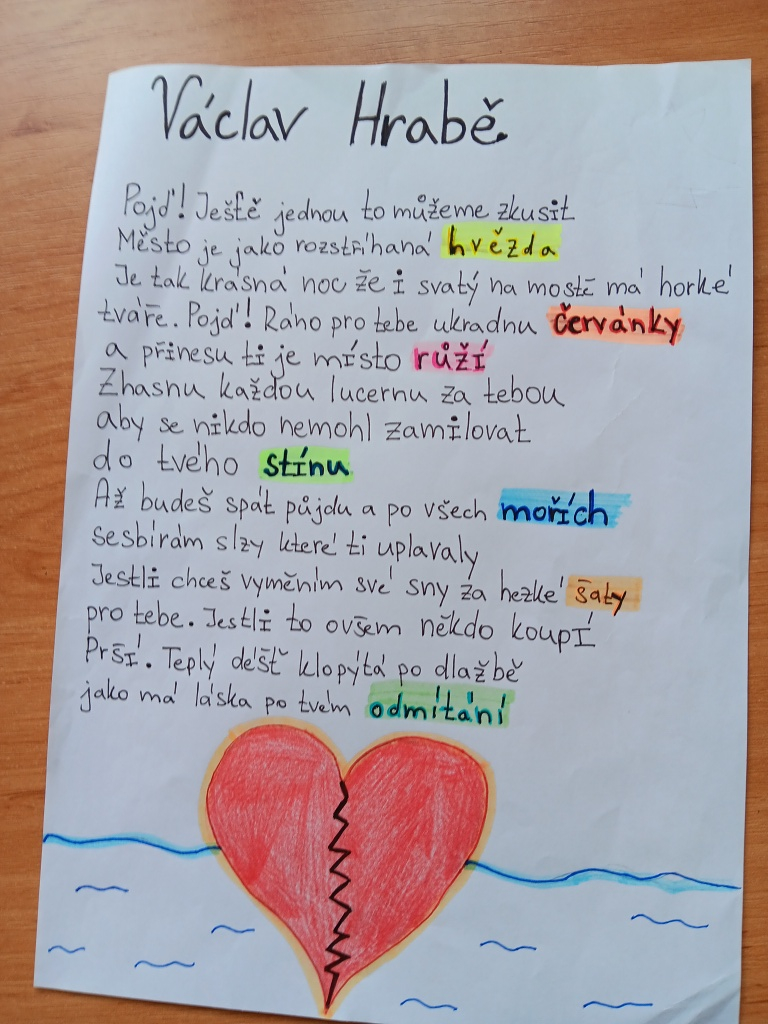 Václav Hrabě.
Pojď! Ještě jednou to můžeme zkusit
Město je jako rozstříhaná hvězda
Je tak krásná noc že i svatý na mostě má horké
tváře. Pojď! Ráno pro tebe ukradnu červánky
a přinesu ti je místo růží
Zhasnu každou lucernu za tebou
aby se nikdo nemohl zamilovat
do tvého stínu
Až budeš spát půjdu a po všech mořích
sesbírám slzy které ti uplavaly
Jestli chceš vyměním své sny za hezké šaty
pro tebe. Jestli to ovšem někdo koupí
Prší. Teplý déšť klopýtá po dlažbě
jako má láska po tvém odmítání